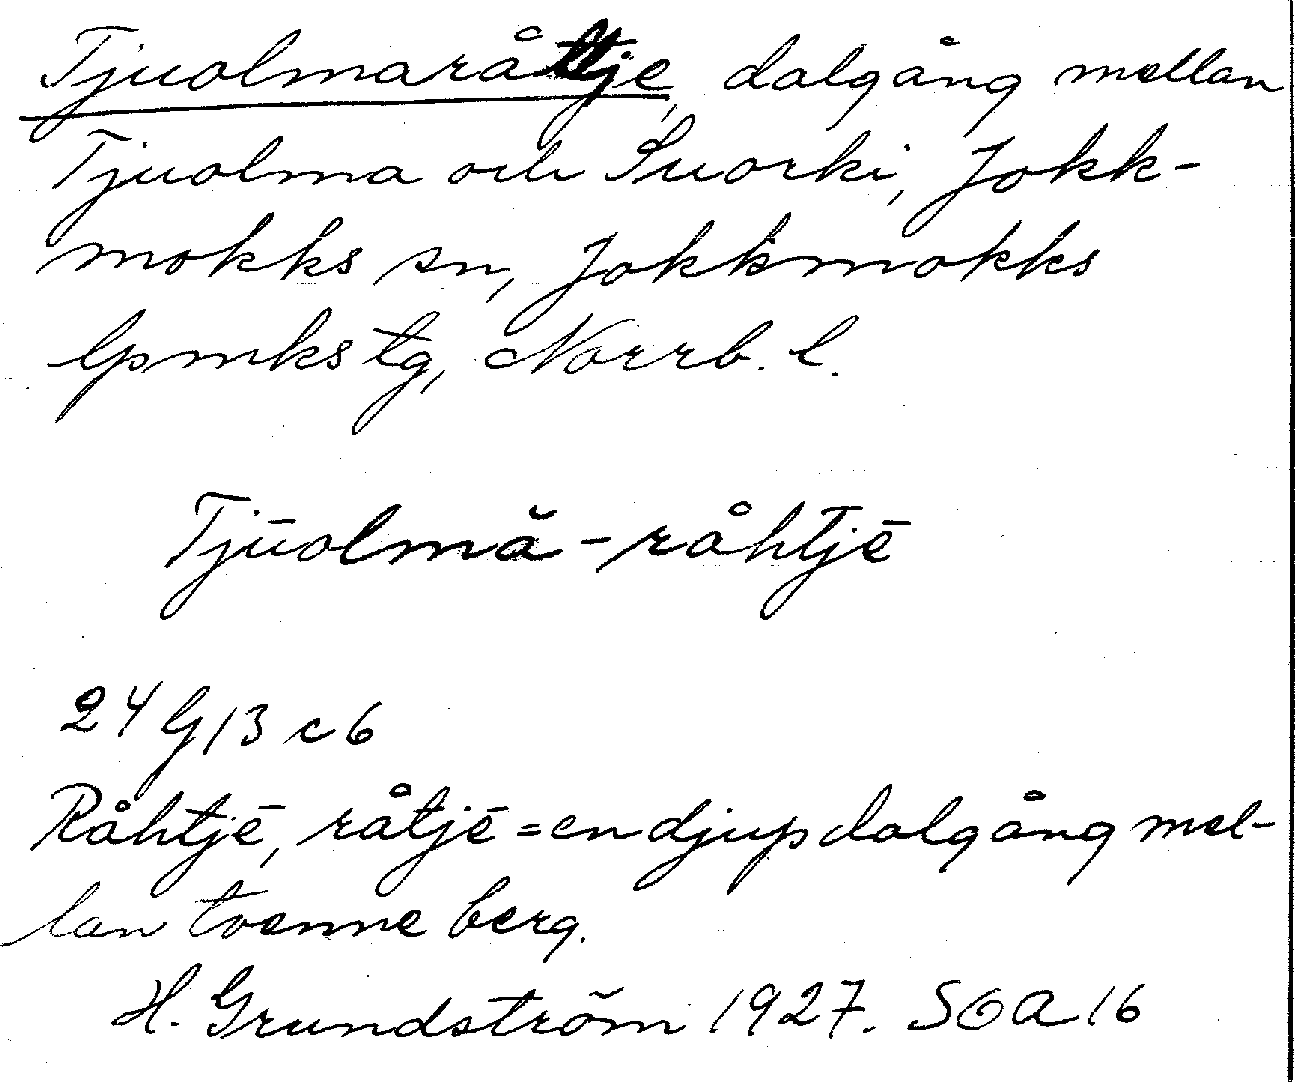 Tjuolmaråttje, dalgång mellan
Tjuolma och Suorki, Jokk-
mokks sn, Jokkmokks
lpmks tg, Norrb. l.
Tjūolmă-råhtjē
24 G 13 c 6
Råhtjē, råtjē = en djup dalgång mel-
lan tvenne berg.
H. Grundström 1927. SOA 16